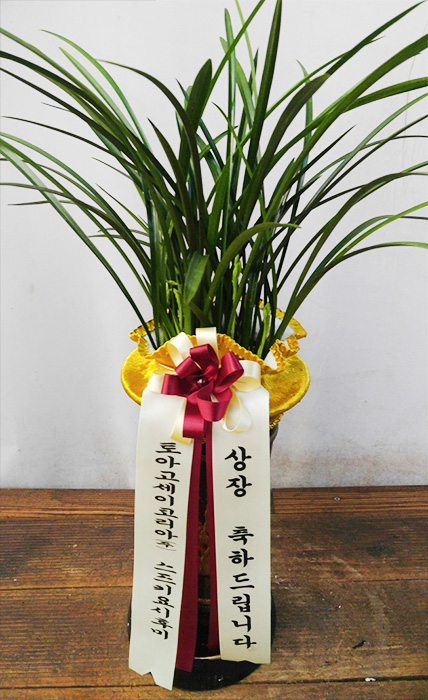 상장 축하드립니다
토아고세이코리아㈜ 스드리요시후미